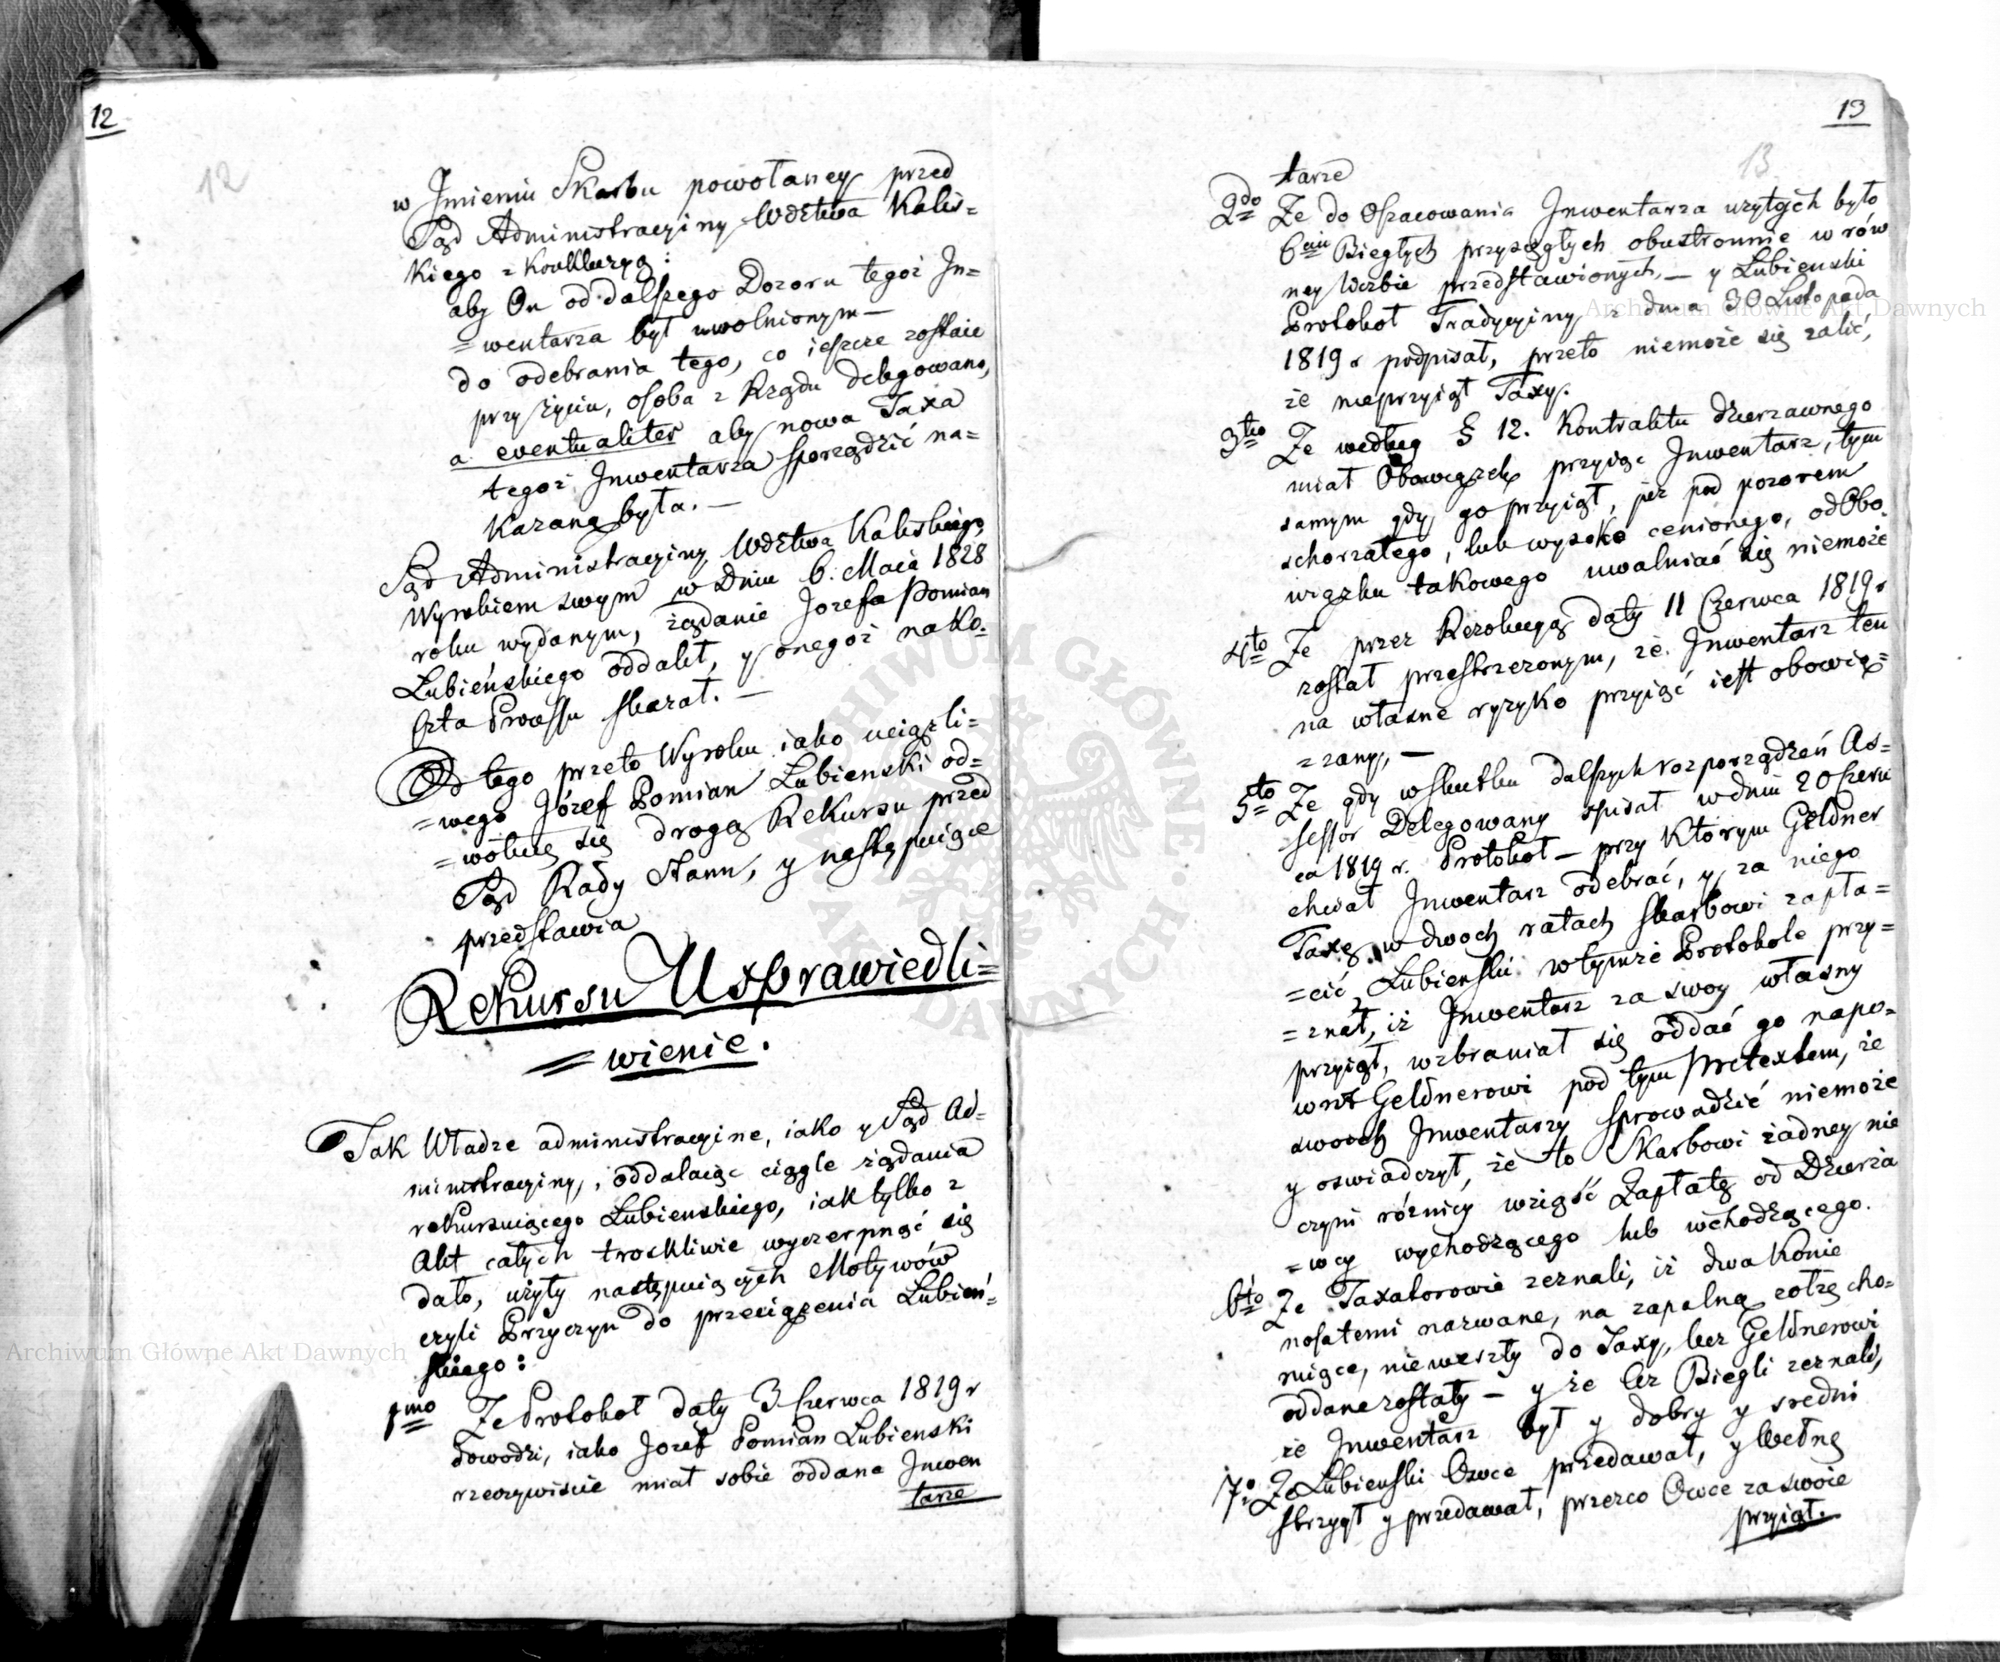 12
12
w Jmieniu Skarbu powołaney przed
Sąd Administracyiny Wdztwa Kalis-
Kiego z Konkluzyą:
aby On od dalszego Dozoru tegoż In-
=wentarza był uwolnionym —
do odebrania tego, co ieszcze zostaie
przy życiu, osoba z Rządu delegowana,
a eventualiter aby nowa Taxa
tegoż Jnwentarza sporządzić na-
Kazaną była. —
Sąd Administracyiny Wdztwa Kaliskiego
Wyrokiem swym w Dniu 6. Maia 1828
roku wydanym, żądanie Jozefa Pomian
Lubieńskiego oddalił, y onegoż na Ko-
szta Processu skazał. —
Od tego przeto Wyroku iako uciążli-
=wego Józef Pomian Lubienski od-
=wołuię się drogą Rekursu przed
Sąd Rady Stanu, y następuiące
przedstawia
Rekursu Usprawiedli=
=wienie.
Tak Władze administracyine, iako y Sąd Ad-
ministracyiny, oddalaiąc ciągle żądania
rekursuiącego Lubienskiego, iak tylko z
Akt całych troskliwie wyczerpnąć się
dało, użyły następuiących Motywów
czyli Przyczyn do przeciążenia Lubień-
skiego:
1mo Ze Protokoł daty 3 Czerwca 1819 r
dowodzi, iako Jozef Pomian Lubienski
rzeczywiscie miał sobie oddane Jnwen
tarze
13
13
tarze
2do Ze do Opracowania Jnwentarza użytych było
6ciu Biegłych przysięgłych obustronnie w rów
ney liczbie przedstawionych, — y Lubienski
Protokoł Tradycyiny z dnia 30 Listopada
1819 r podpisał, przeto niemoże się żalić,
że nieprzyiął Taxy.
3tio Ze według § 12. Kontraktu dzierzawnego
miał Obowiązek przyiąc Jnwentarz, tym
samym gdy go przyiął, iuż pod pozorem
schorzałego, lub wysoko cenionego, od Obo-
wiązku takowego uwalniać się niemoże
4to Ze przez Rezolucyą daty 11 Czerwca 1819 r
został przestrzeżonym, że Jnwentarz ten
na własne ryzyko przyiąć iest obowią-
=zany, —
5to Ze gdy w skutku dalszych rozporządzeń As-
=sessor Delegowany spisał w dniu 20 Czerw
ca 1819 r. Protokoł — przy którym Geldner
chciał Jnwentarz odebrać, y za niego
Taxę w dwoch ratach Skarbowi zapła-
=cić, Lubienski w tymże Protokole przy-
=znał, iż Jnwentarz za swoy własny
przyiął, wzbraniał się oddać go napo-
wrót Geldnerowi pod tym Pretextem, że
swoich Jnwentarzy sprowadzić niemoże
y oswiadczył, że to Skarbowi żadney nie
czyni różnicy wziąść Zapłatę od Dzierża
=wcy wychodzącego lub wchodzącego.
6to Ze Taxatorowie zeznali, iż dwa Konie
nosatemi nazwane, na zapalną zołzę cho-
ruiące, nieweszły do Taxy, lecz Geldnerowi
oddane zostały — y że Ciż Biegli zeznali,
że Jnwentarz był y dobry y sredni
7o Ze Lubienski Owce przedawał, y Wełnę
strzygł y przedawał, przezco Owce za swoie
przyiął.
Archiwum Główne Akt Dawnych
Archiwum Główne Akt Dawnych
ARCHIWUM GŁÓWNE AKT DAWNYCH